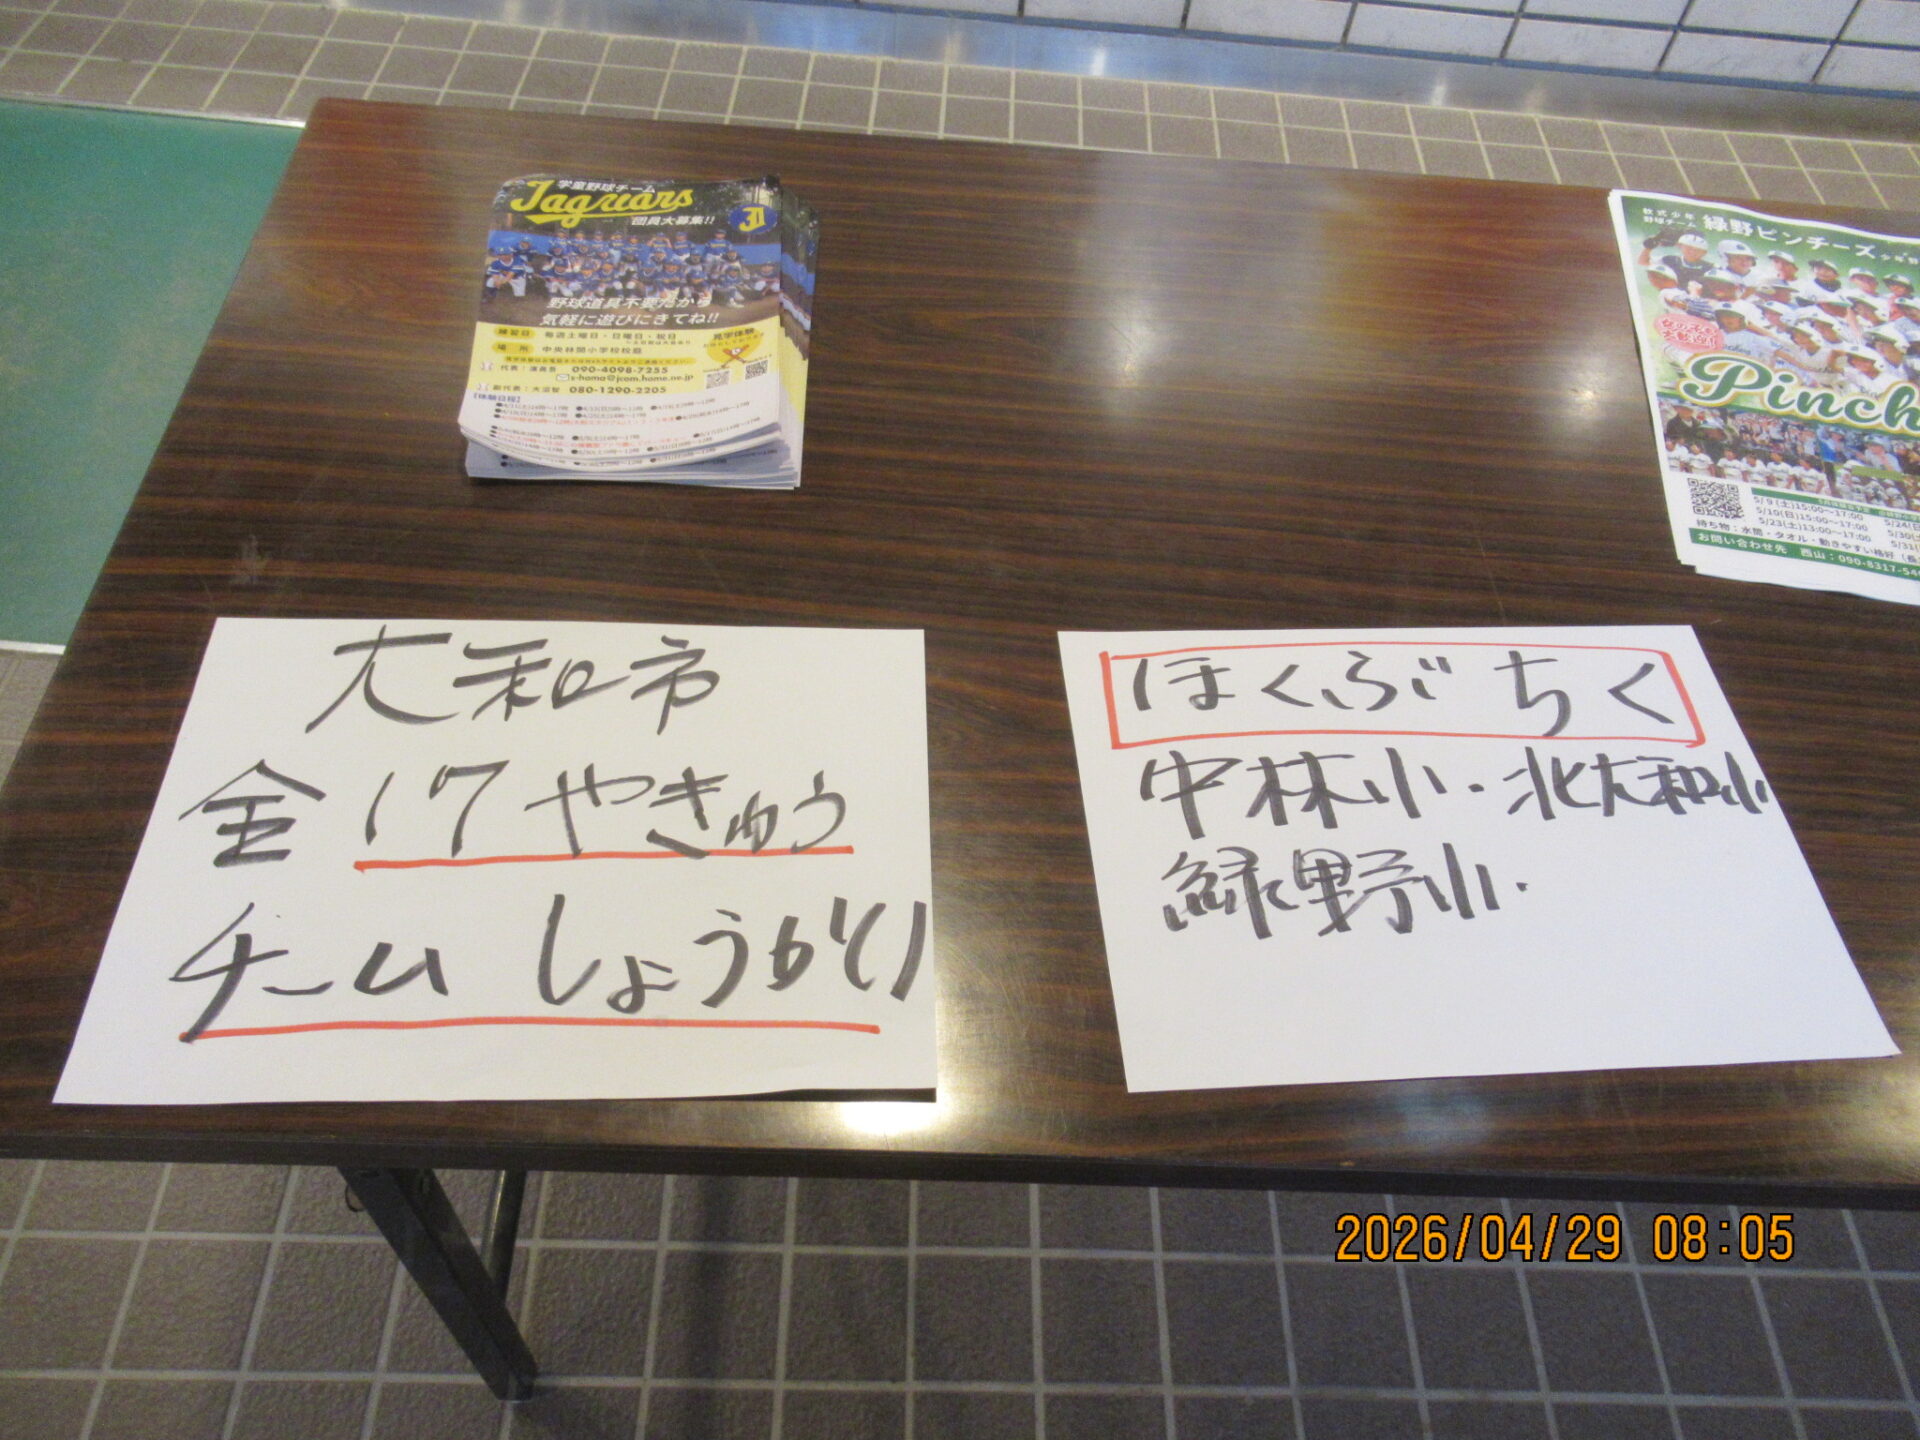 学童野球チーム
Jaguars
団員大募集!!
野球道具不要だから
気軽に遊びにきてね!!
練習日 毎週土曜日・日曜日・祝日
場所 中央林間小学校校庭
見学体験
090-4098-7255
s-hama@jcom.home.ne.jp
副代表:大沼智 080-1290-2205
【体験日程】
軟式少年
野球チーム 緑野ピンチーズ
Pinch
5/9(土)15:00~17:00
5/10(日)15:00~17:00
5/23(土)13:00~17:00
5/24(日
5/30(土
5/31(
持ち物:水筒・タオル・動きやすい格好(長
お問い合わせ先 西山:090-8317-54
大和市
全17やきゅう
チーム しょうかい
ほくぶ ちく
中林小・北大和小
緑野小・
2026/04/29 08:05